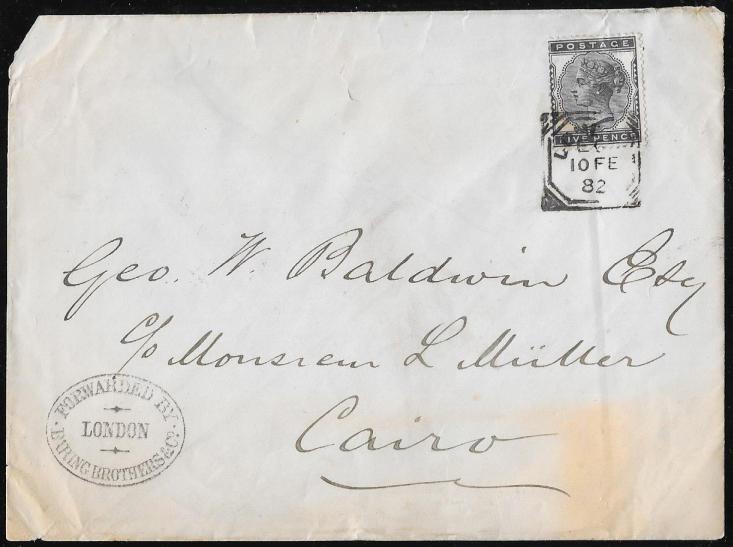 POSTAGE
FIVE PENCE
10 FE
82
Geo. W. Baldwin Esq
c/o Monsieur L Müller
Cairo
FORWARDED BY
LONDON
BARING BROTHERS & Co.